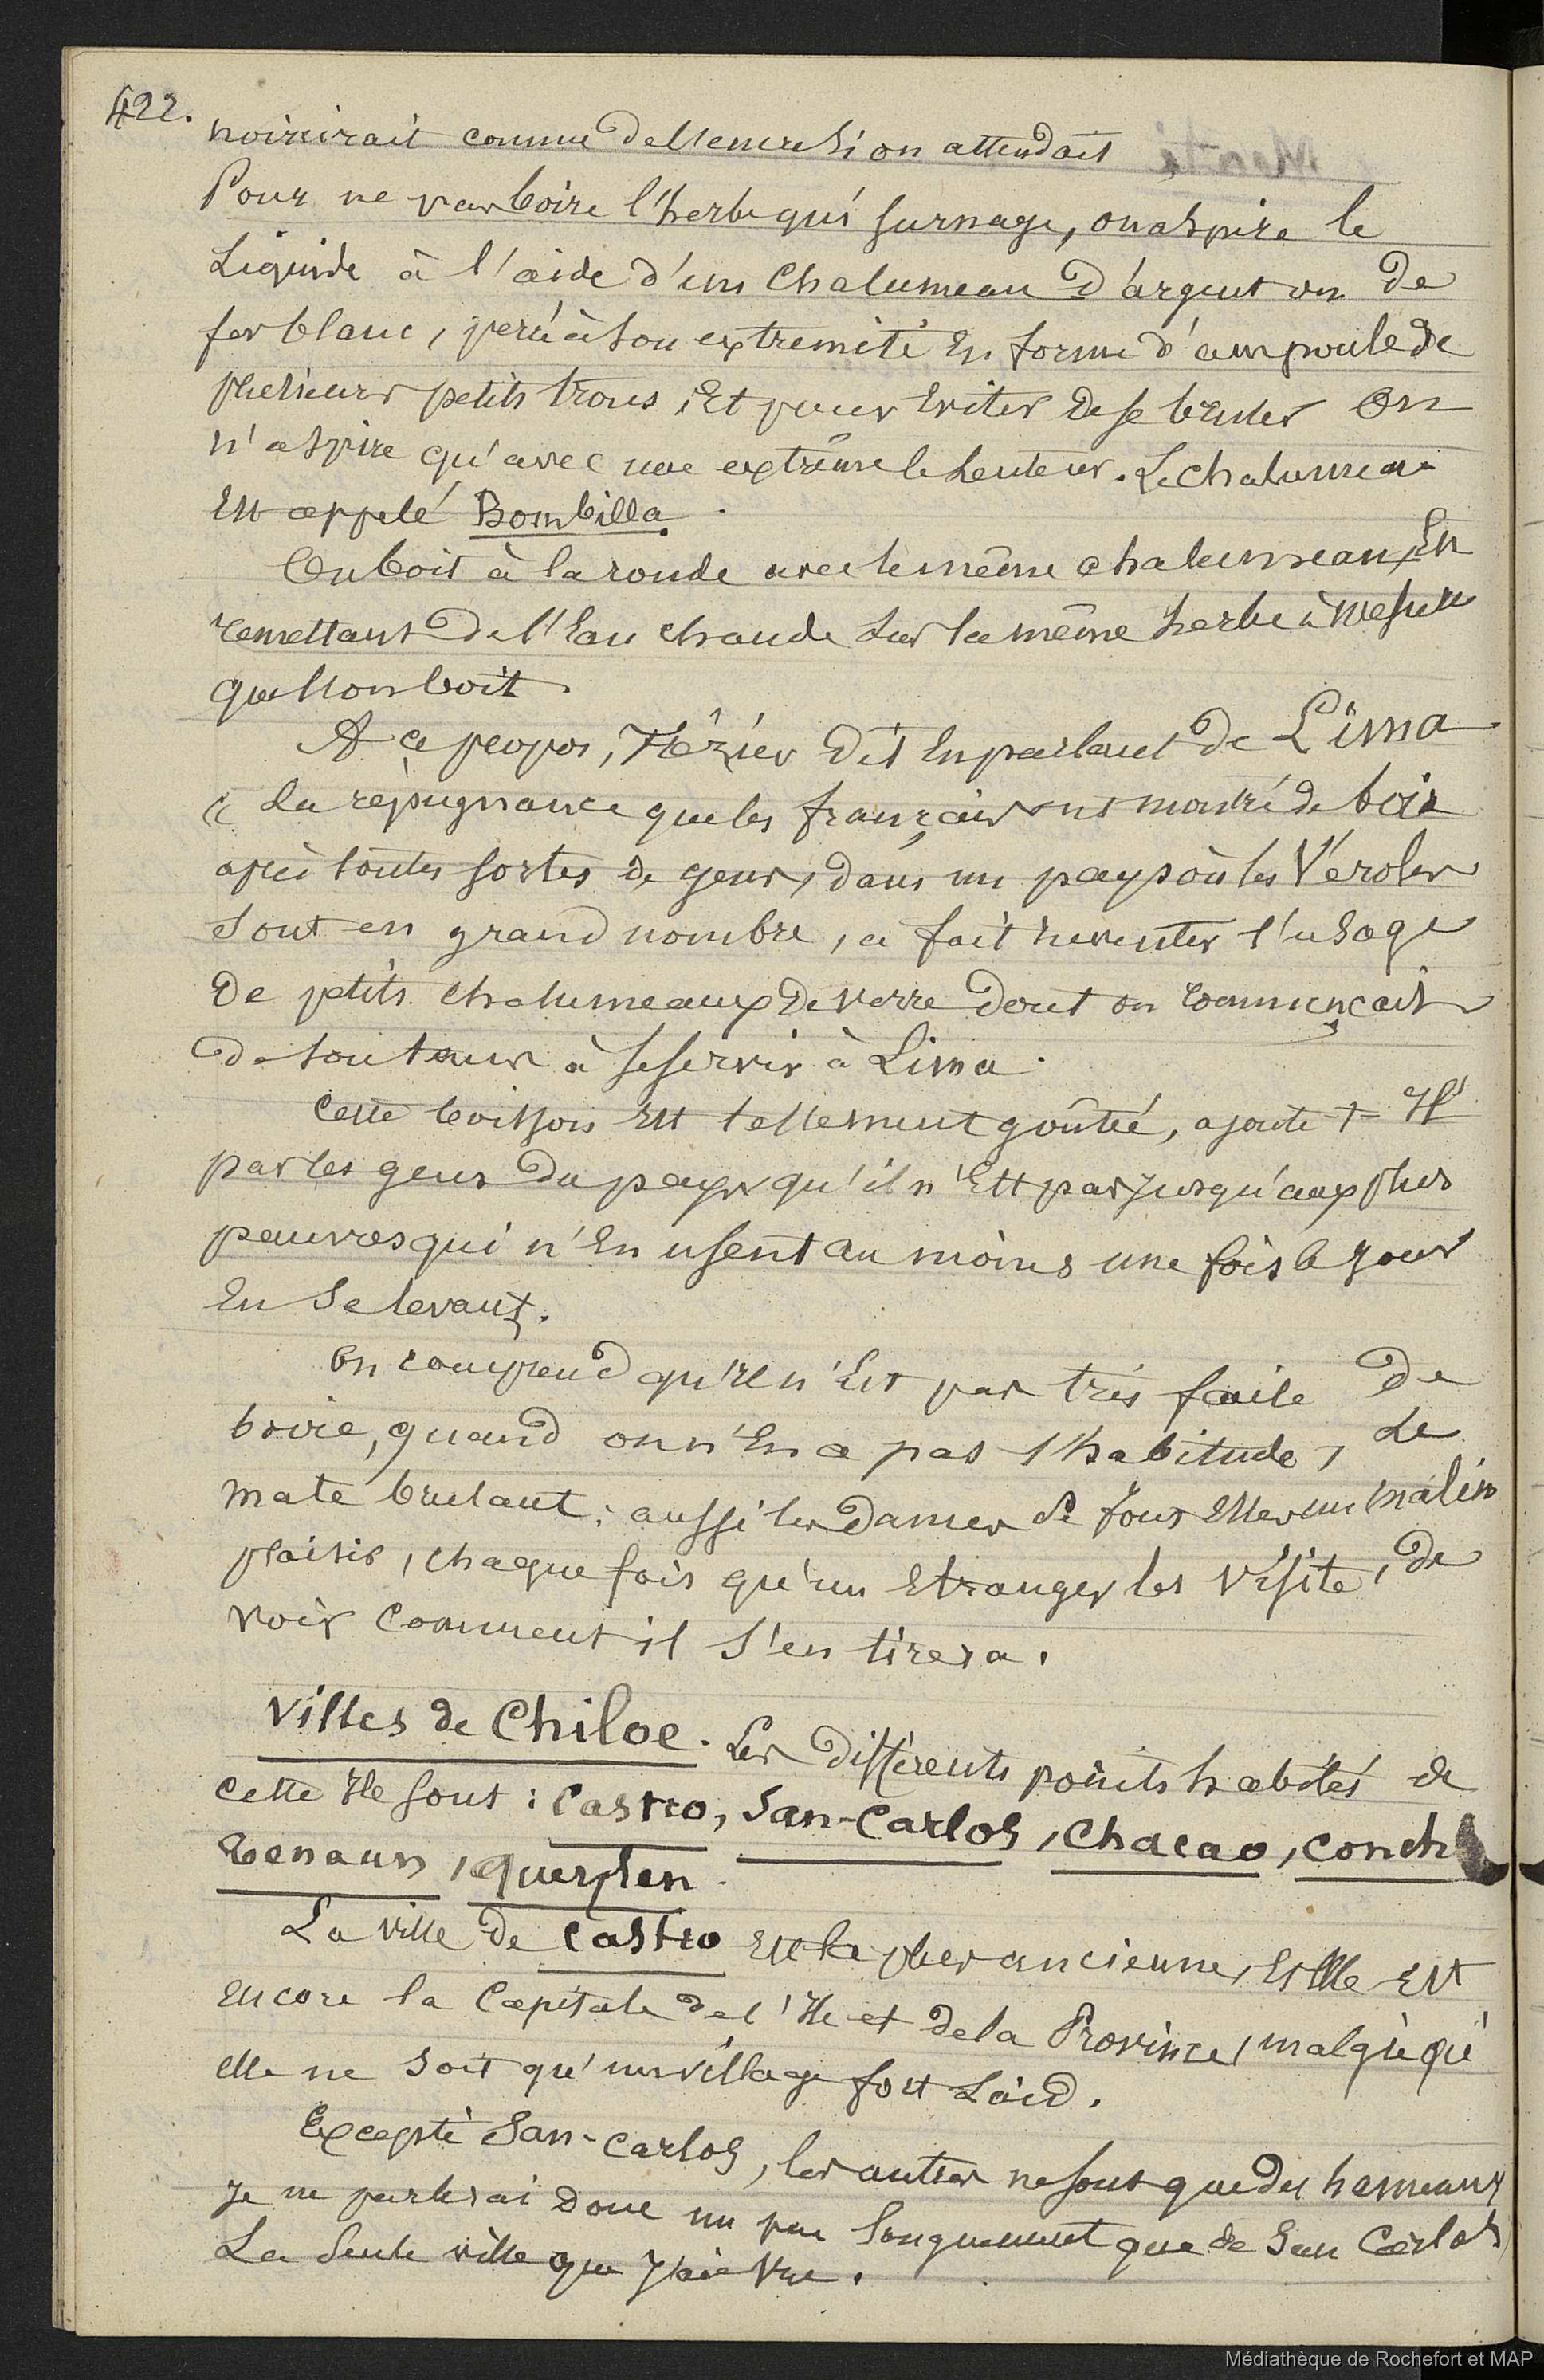 422.
noircirait comme de l'encre si on attendait
Pour ne pas boire l'herbe qui surnage, on aspire le
Liquide à l'aide d'un Chalumeau D'argent ou De
fer blanc, percé à son extremité En forme d'ampoule de
plusieurs petits trous, Et pour Eviter de se bruler On
n'aspire qu'avec une extrême lenteur. Le Chalumeau
Est appelé Bombilla.
On boit à la ronde avec le même chalumeau, En
remettant De l'Eau chaude sur la même herbe à mesure
que l'on boit.
A ce propos, Frézier Dit En parlant de Lima
« La répugnance que les français ont montré de boire
après toutes sortes de gens, dans un pays où les Véroles
sont en grand nombre, a fait inventer l'usage
De petits chalumeaux De verre dont on commençait
de son temps à se servir à Lima.
Cette boisson Est tellement goûtée, ajoute t-il
par les gens Du pays qu'il n'Est pas jusqu'aux plus
pauvres qui n'En usent au moins une fois le jour
En se levant.
On comprend qu'il n'Est pas très facile De
boire, quand on n'En a pas l'habitude, Le
mate brulant; aussi les Dames se font Elles un malin
plaisir, chaque fois qu'un Etranger les visite, De
voir comment il s'en tirera.
Villes de Chiloe. Les Différents points habités de
cette Ile sont : Castro, San-Carlos, Chacao, conch
tenaun, Queylen.
La ville De Castro Est la plus ancienne, Elle Est
Encore la Capitale De l'Ile et De la Province, malgré qu'
elle ne soit qu'un village fort Laid.
Excepté San-Carlos, les autres ne sont que des hameaux
Je ne parlerai Donc un peu longuement que de San Carlos
La Seule ville que j'aie vue.
Médiathèque de Rochefort et MAP